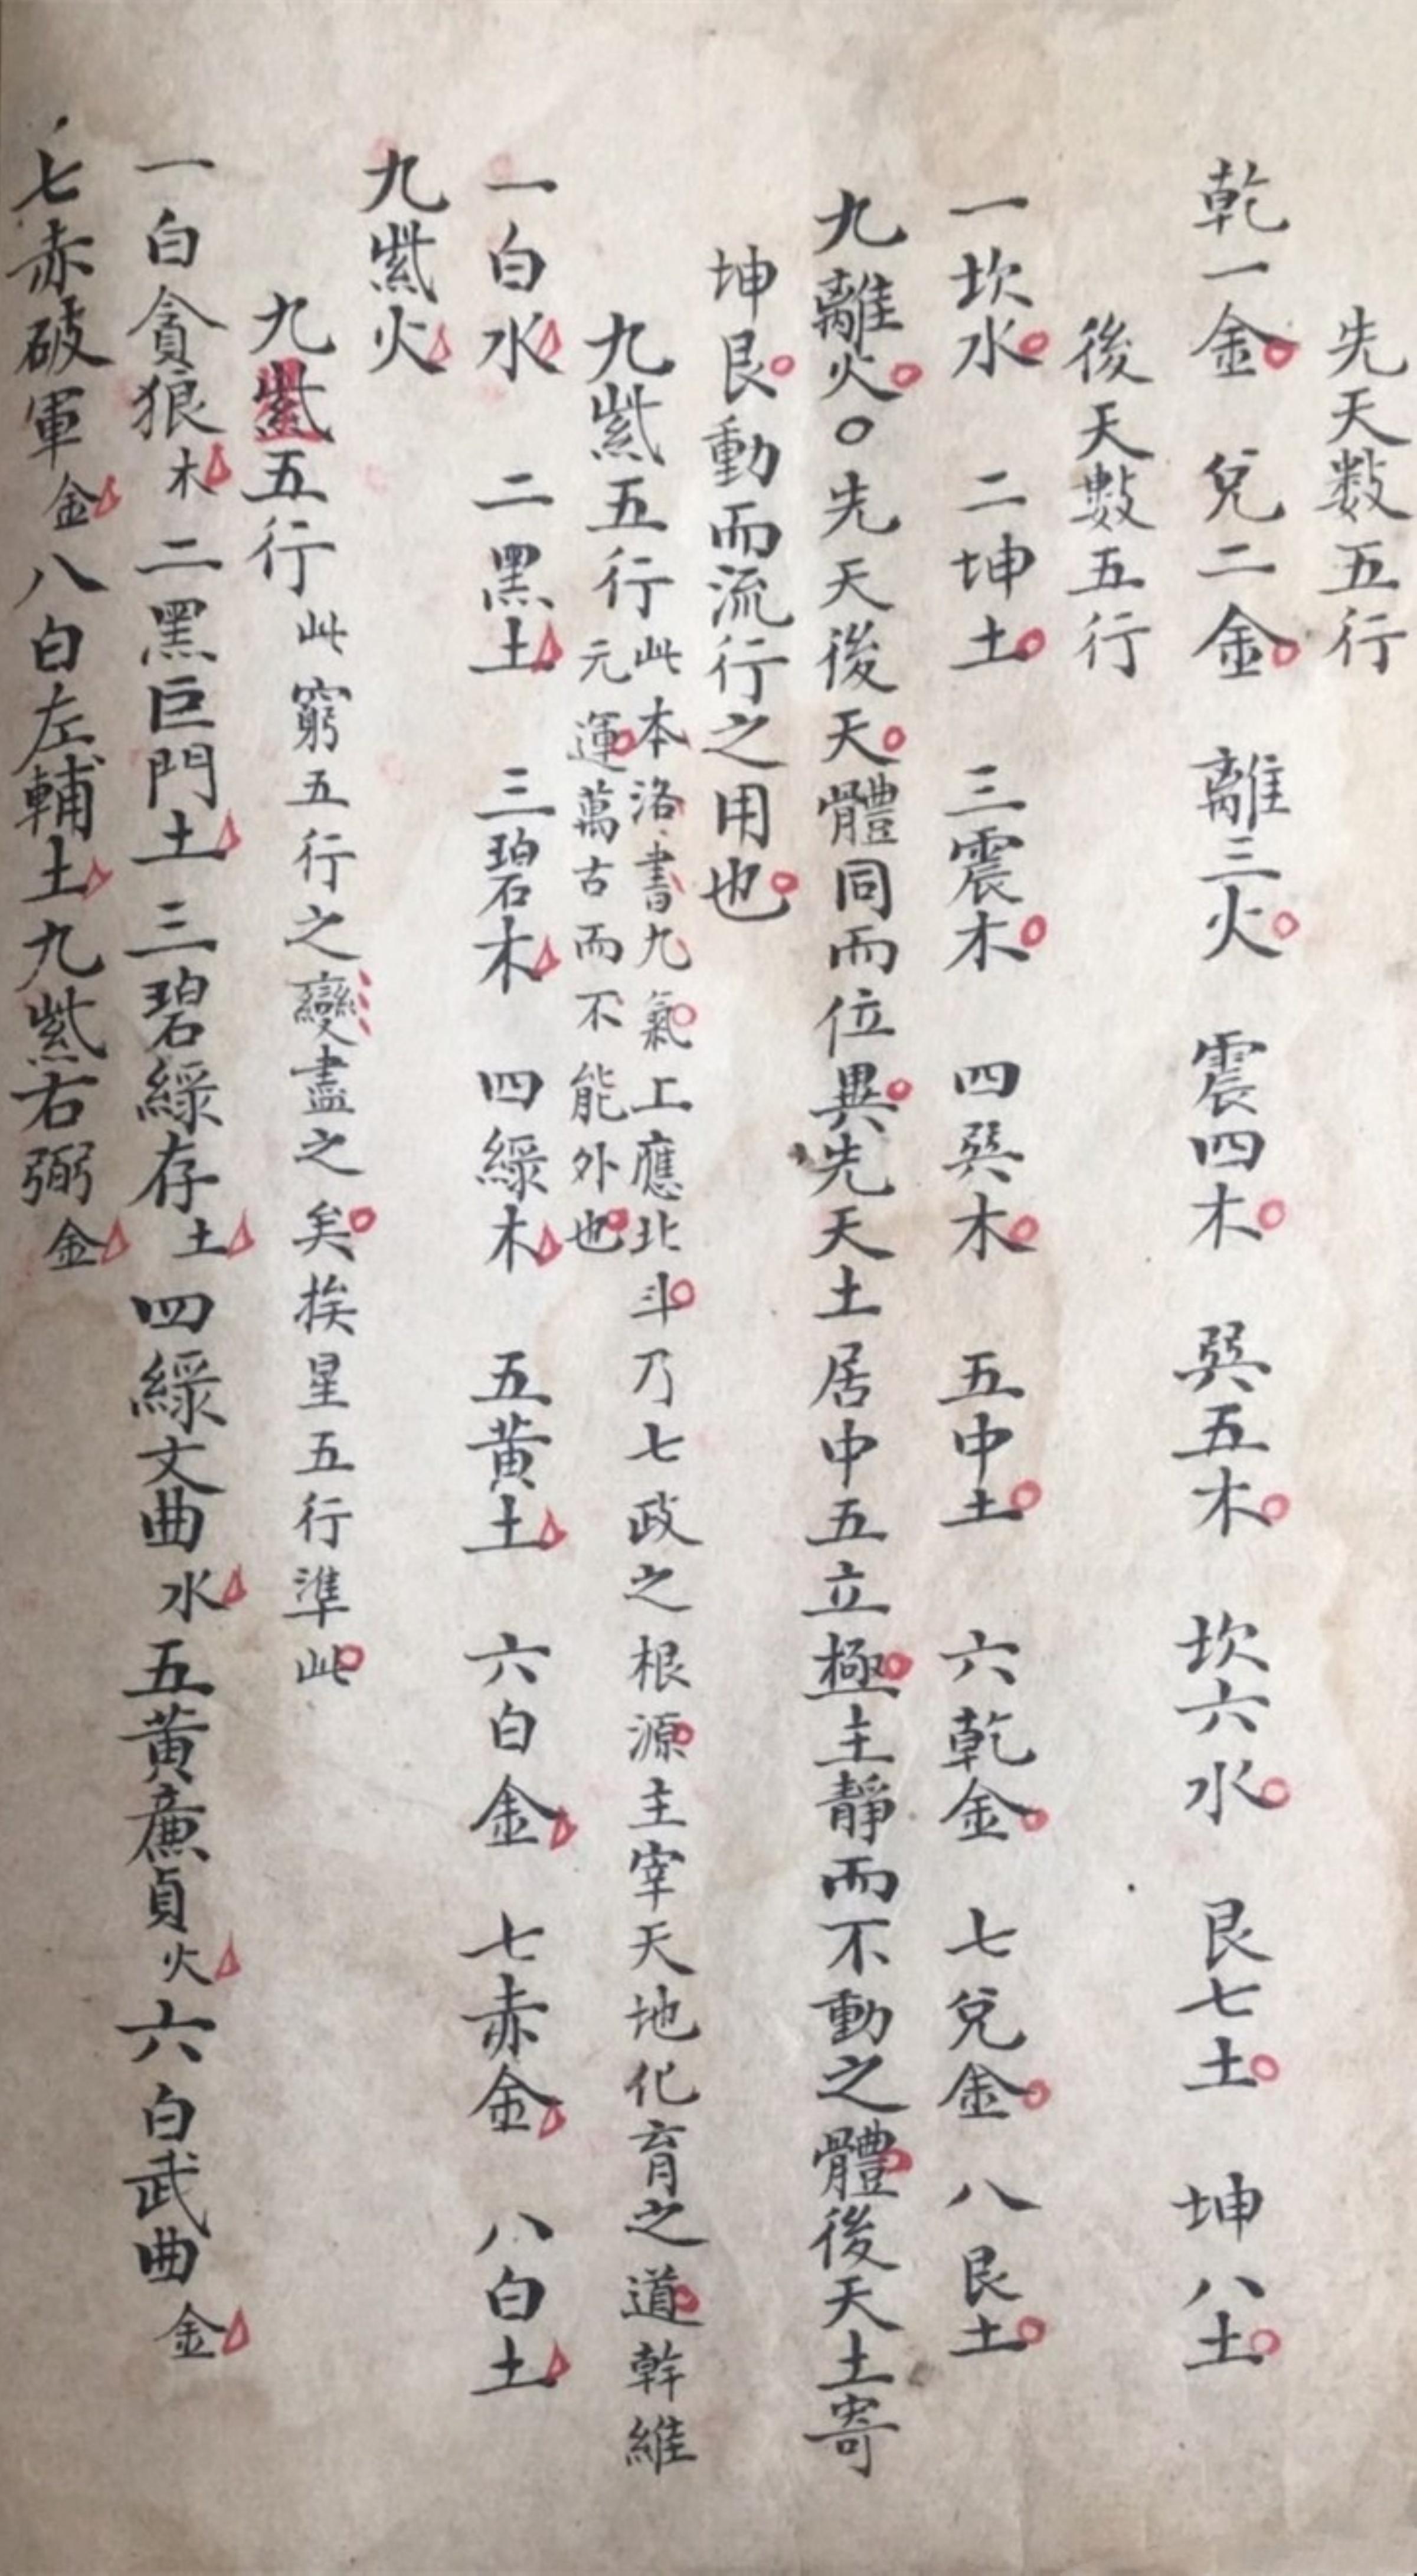 先天数五行
乾一金　兌二金　離三火　震四木　巽五木　坎六水　艮七土　坤八土
後天數五行
一坎水　二坤土　三震木　四巽木　五中土　六乾金　七兌金　八艮土
九離火○先天後天體同而位異先天土居中五立極主靜而不動之體後天土寄
坤艮動而流行之用也
九紫五行
此本洛書九氣上應北斗乃七政之根源主宰天地化育之道幹維
元運萬古而不能外也
一白水　二黑土　三碧木　四綠木　五黃土　六白金　七赤金　八白土
九紫火
九紫五行此窮五行之變盡之矣挨星五行準此
一白貪狼木二黑巨門土三碧綠存土四綠文曲水五黃廉貞火六白武曲金
七赤破軍金八白左輔土九紫右弼金